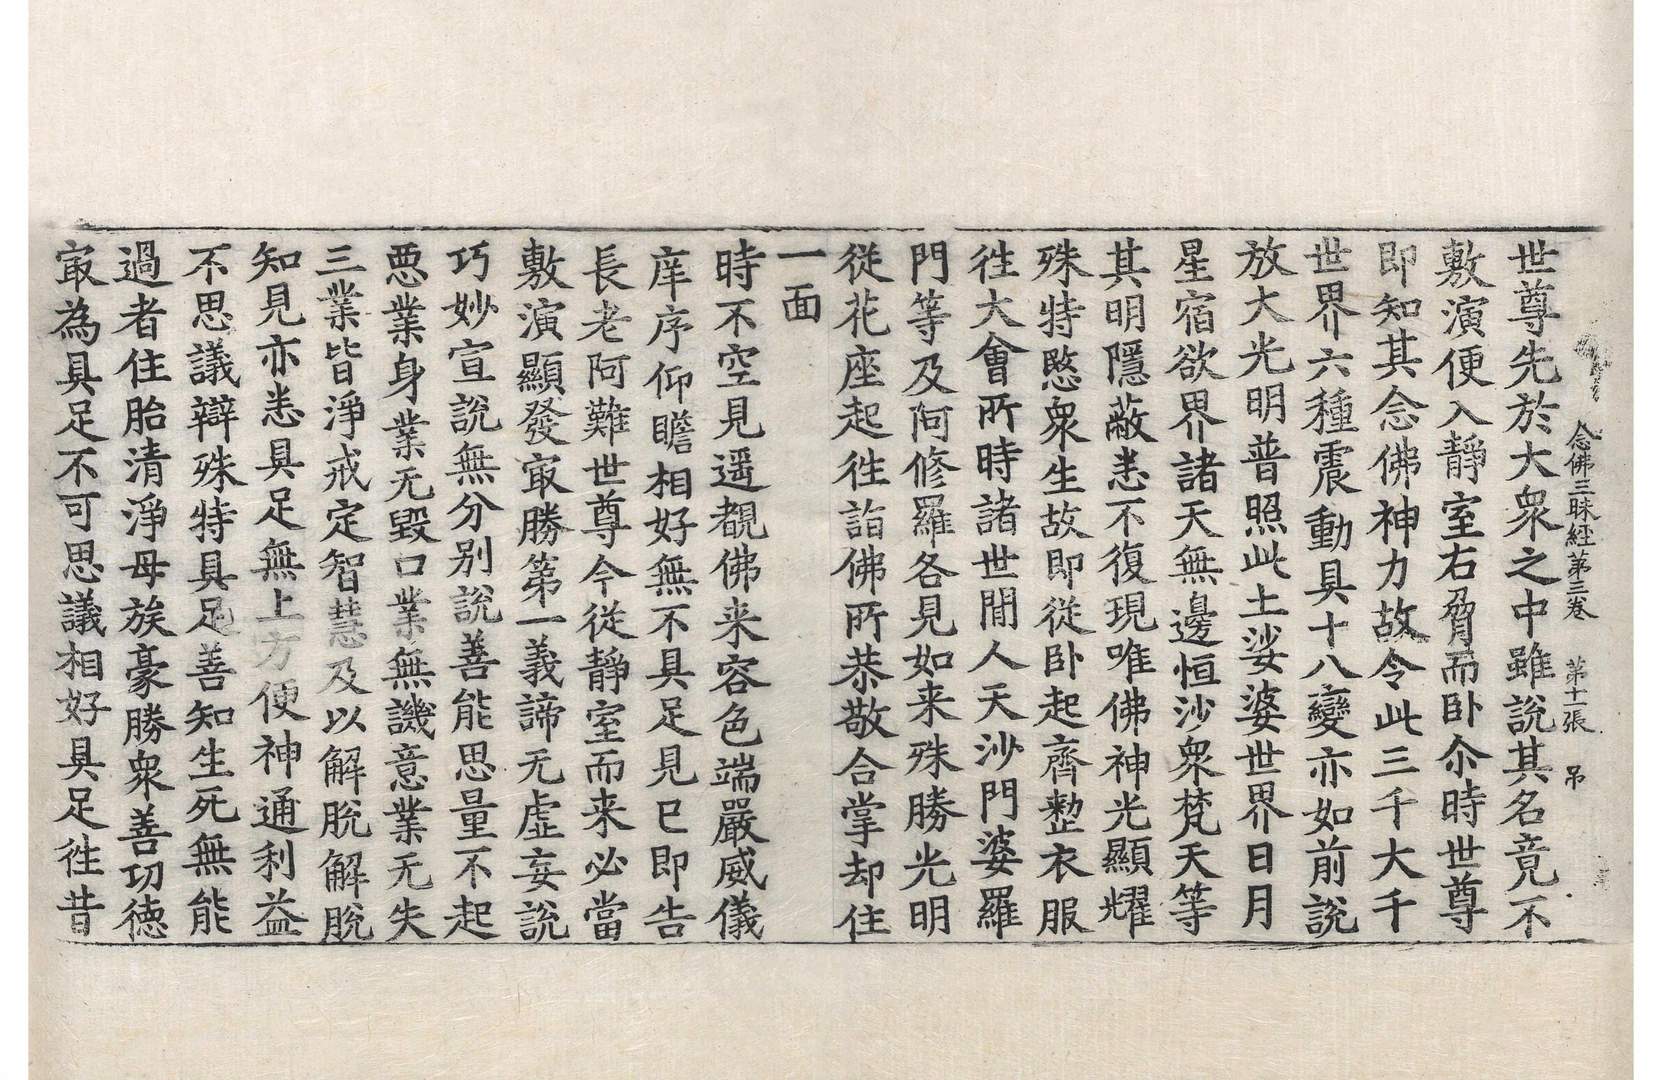 念佛三昧經第三卷　第十一張　吊
世尊先於大衆之中雖說其名竟不
敷演便入靜室右脅而卧尒時世尊
即知其念佛神力故令此三千大千
世界六種震動具十八變亦如前說
放大光明普照此土娑婆世界日月
星宿欲界諸天無邊恒沙衆梵天等
其明隱蔽悉不復現唯佛神光顯耀
殊特愍衆生故即從卧起齊整衣服
徃大會所時諸世間人天沙門婆羅
門等及阿修羅各見如来殊勝光明
從花座起徃詣佛所恭敬合掌却住
一面
時不空見遥覩佛来容色端嚴威儀
庠序仰瞻相好無不具足見已即告
長老阿難世尊今從靜室而来必當
敷演顯發㝡勝第一義諦无虛妄說
巧妙宣說無分别說善能思量不起
惡業身業无毀口業無譏意業无失
三業皆淨戒定智慧及以解脫解脫
知見亦悉具足無上方便神通利益
不思議辯殊特具足善知生死無能
過者住胎清淨母族豪勝衆善功德
㝡為具足不可思議相好具足徃昔